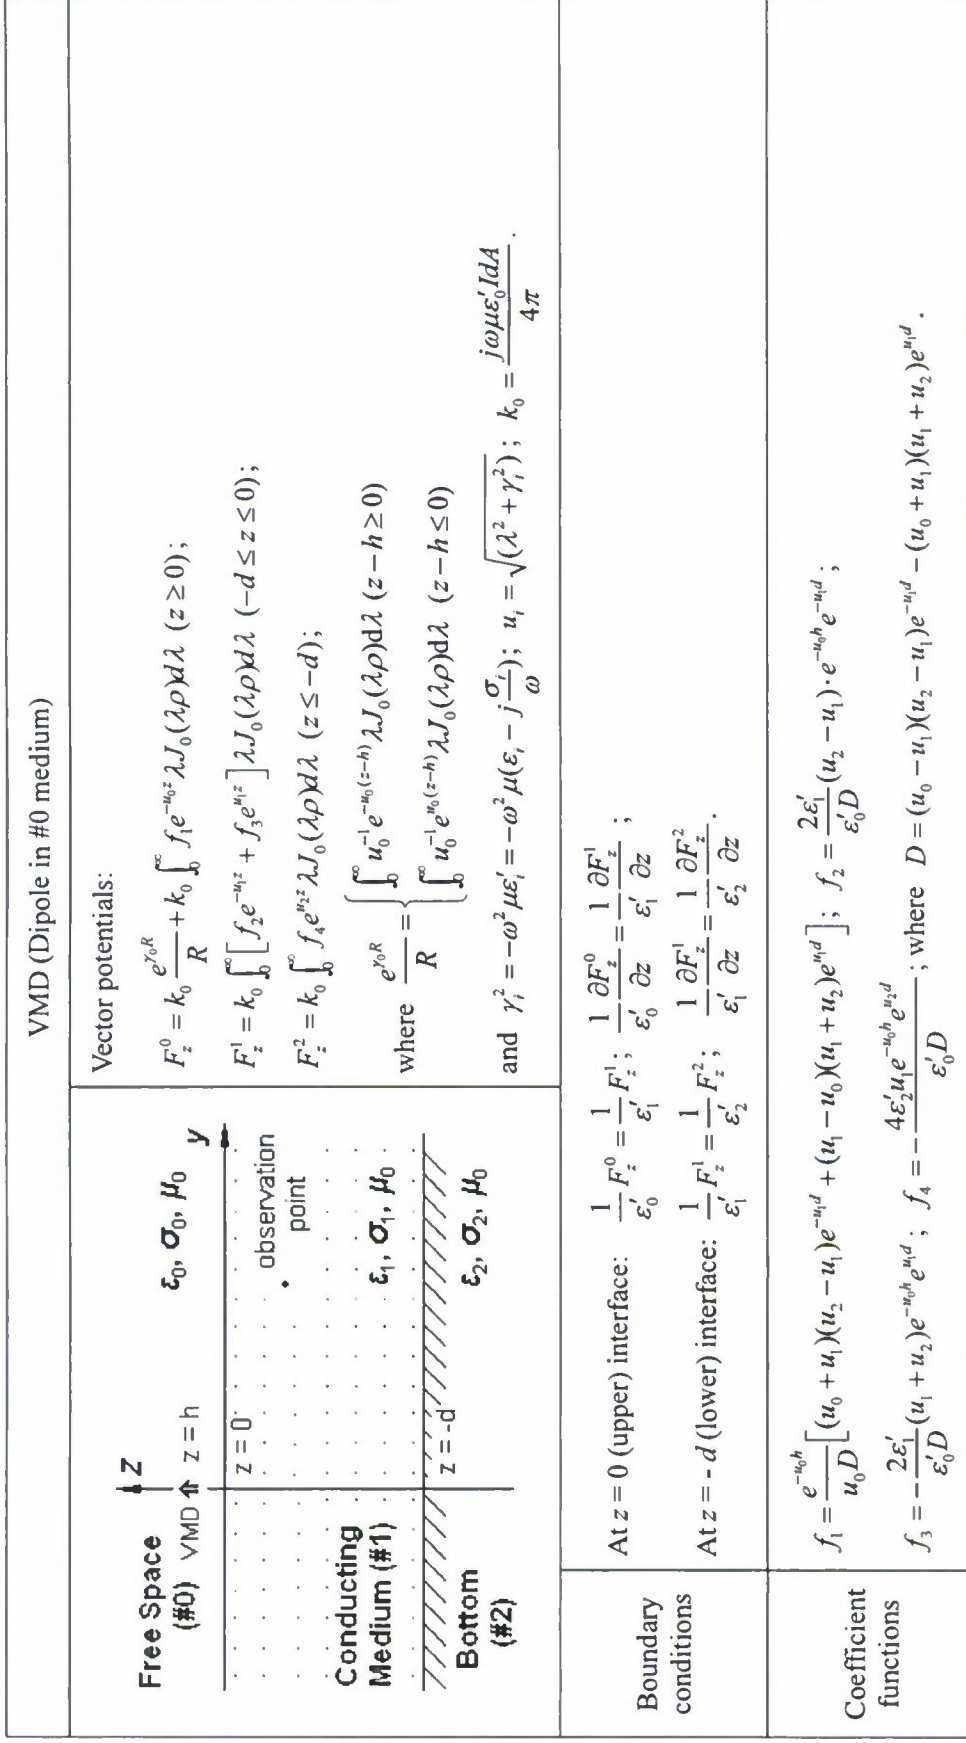 VMD (Dipole in #0 medium)
Free Space (#0)
VMD ⇑ z = h
Z
ε₀, σ₀, μ₀
y
z = 0
observation point
Conducting Medium (#1)
ε₁, σ₁, μ₀
z = -d
Bottom (#2)
ε₂, σ₂, μ₀
Vector potentials:
F_z^0 = k₀ \frac{e^{γ₀R}}{R} + k₀ ∫_0^∞ f₁e^{-u₀z} λJ₀(λρ)dλ (z ≥ 0);
F_z^1 = k₀ ∫_0^∞ [f₂e^{-u₁z} + f₃e^{u₁z}] λJ₀(λρ)dλ (-d ≤ z ≤ 0);
F_z^2 = k₀ ∫_0^∞ f₄e^{u₂z} λJ₀(λρ)dλ (z ≤ -d);
where \frac{e^{γ₀R}}{R} = { ∫_0^∞ u₀^{-1}e^{-u₀(z-h)} λJ₀(λρ)dλ (z - h ≥ 0)
∫_0^∞ u₀^{-1}e^{u₀(z-h)} λJ₀(λρ)dλ (z - h ≤ 0)
and γ_i^2 = -ω²με′_i = -ω²μ(ε_i - j\frac{σ_i}{ω}); u_i = \sqrt{(λ² + γ_i^2)}; k₀ = \frac{jωμε′₀IdA}{4π}.
Boundary conditions
At z = 0 (upper) interface: \frac{1}{ε′₀}F_z^0 = \frac{1}{ε′₁}F_z^1; \frac{1}{ε′₀}\frac{∂F_z^0}{∂z} = \frac{1}{ε′₁}\frac{∂F_z^1}{∂z};
At z = - d (lower) interface: \frac{1}{ε′₁}F_z^1 = \frac{1}{ε′₂}F_z^2; \frac{1}{ε′₁}\frac{∂F_z^1}{∂z} = \frac{1}{ε′₂}\frac{∂F_z^2}{∂z}.
Coefficient functions
f₁ = \frac{e^{-u₀h}}{u₀D}[(u₀ + u₁)(u₂ - u₁)e^{-u₁d} + (u₁ - u₀)(u₁ + u₂)e^{u₁d}]; f₂ = \frac{2ε′₁}{ε′₀D}(u₂ - u₁)·e^{-u₀h}e^{-u₁d};
f₃ = -\frac{2ε′₁}{ε′₀D}(u₁ + u₂)e^{-u₀h}e^{u₁d}; f₄ = -\frac{4ε′₂u₁e^{-u₀h}e^{u₂d}}{ε′₀D}; where D = (u₀ - u₁)(u₂ - u₁)e^{-u₁d} - (u₀ + u₁)(u₁ + u₂)e^{u₁d}.